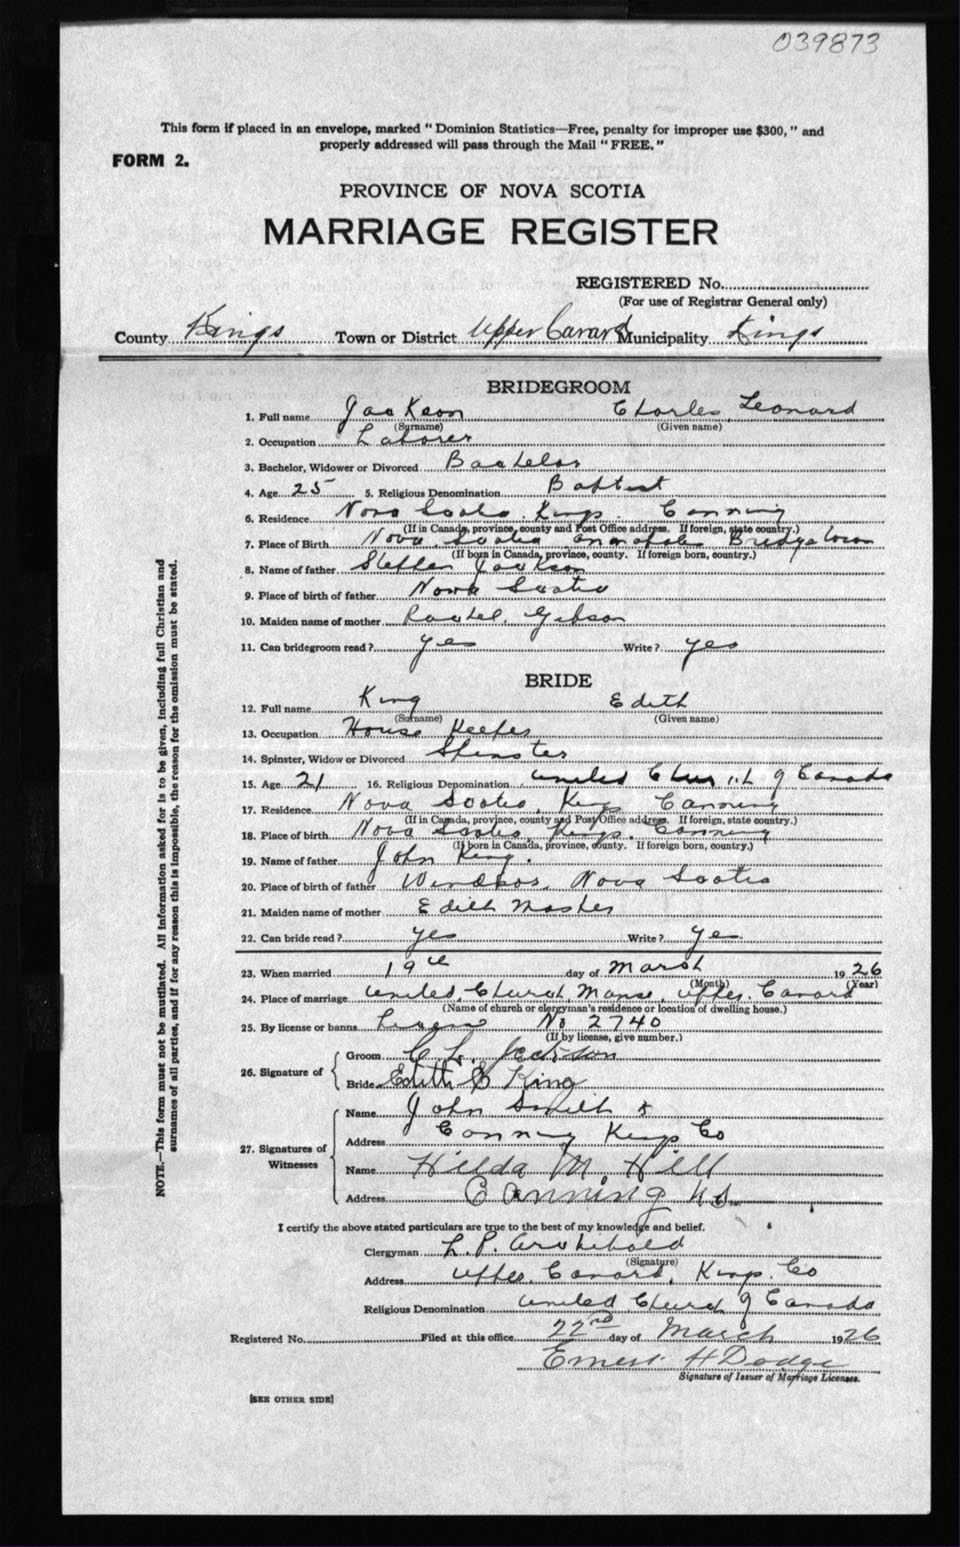 039873
This form if placed in an envelope, marked "Dominion Statistics—Free, penalty for improper use $300," and
properly addressed will pass through the Mail "FREE."
FORM 2.
PROVINCE OF NOVA SCOTIA
MARRIAGE REGISTER
REGISTERED No.
(For use of Registrar General only)
County Kings Town or District Upper Canard Municipality Kings
BRIDEGROOM
1. Full name Jackson Charles Leonard
(Surname) (Given name)
2. Occupation Laborer
3. Bachelor, Widower or Divorced Bachelor
4. Age 25 5. Religious Denomination Baptist
6. Residence Nova Scotia Kings Canning
(If in Canada, province, county and Post Office address. If foreign, state country.)
7. Place of Birth Nova Scotia Annapolis Bridgetown
(If born in Canada, province, county. If foreign born, country.)
8. Name of father Stephen Jackson
9. Place of birth of father Nova Scotia
10. Maiden name of mother Rachel Gibson
11. Can bridegroom read? yes Write? yes
BRIDE
12. Full name King Edith
(Surname) (Given name)
13. Occupation House Keeper
14. Spinster, Widow or Divorced Spinster
15. Age 21 16. Religious Denomination United Church of Canada
17. Residence Nova Scotia, Kings Canning
(If in Canada, province, county and Post Office address. If foreign, state country.)
18. Place of birth Nova Scotia, Kings. Canning
(If born in Canada, province, county. If foreign born, country.)
19. Name of father John King.
20. Place of birth of father Windsor, Nova Scotia
21. Maiden name of mother Edith Mosher
22. Can bride read? yes Write? yes
23. When married 19th day of March 1926
(Month) (Year)
24. Place of marriage United Church Manse, Upper Canard
(Name of church or clergyman's residence or location of dwelling house.)
25. By license or banns License No 2740
(If by license, give number.)
26. Signature of
Groom C L. Jackson
Bride Edith E King
27. Signatures of Witnesses
Name John Smith
Address Canning Kings Co
Name Hilda M. Hill
Address Canning N.S.
I certify the above stated particulars are true to the best of my knowledge and belief.
Clergyman L. P. Archibald
(Signature)
Address Upper Canard, Kings Co
Religious Denomination United Church of Canada
Registered No. Filed at this office 22nd day of March 1926
Ernest H Dodge
Signature of Issuer of Marriage Licenses.
[SEE OTHER SIDE]
NOTE.—This form must not be mutilated. All information asked for is to be given, including full Christian and
surnames of all parties, and if for any reason this is impossible, the reason for the omission must be stated.